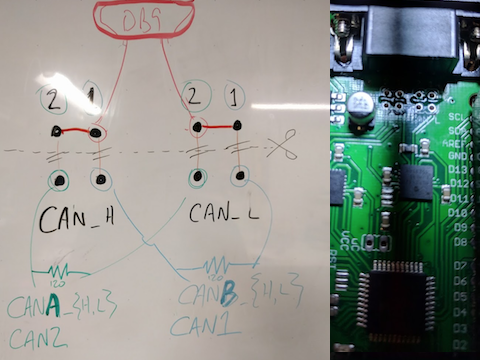 DB9
2 1 2 1
CAN_H CAN_L
120 120
CANA_{H,L} CANB_{H,L}
CAN2 CAN1
SCL
AREF
GND
D13
D12
D11
D10
D9
D8
VCC
RST
D7
D6
D5
D4
D3
D2